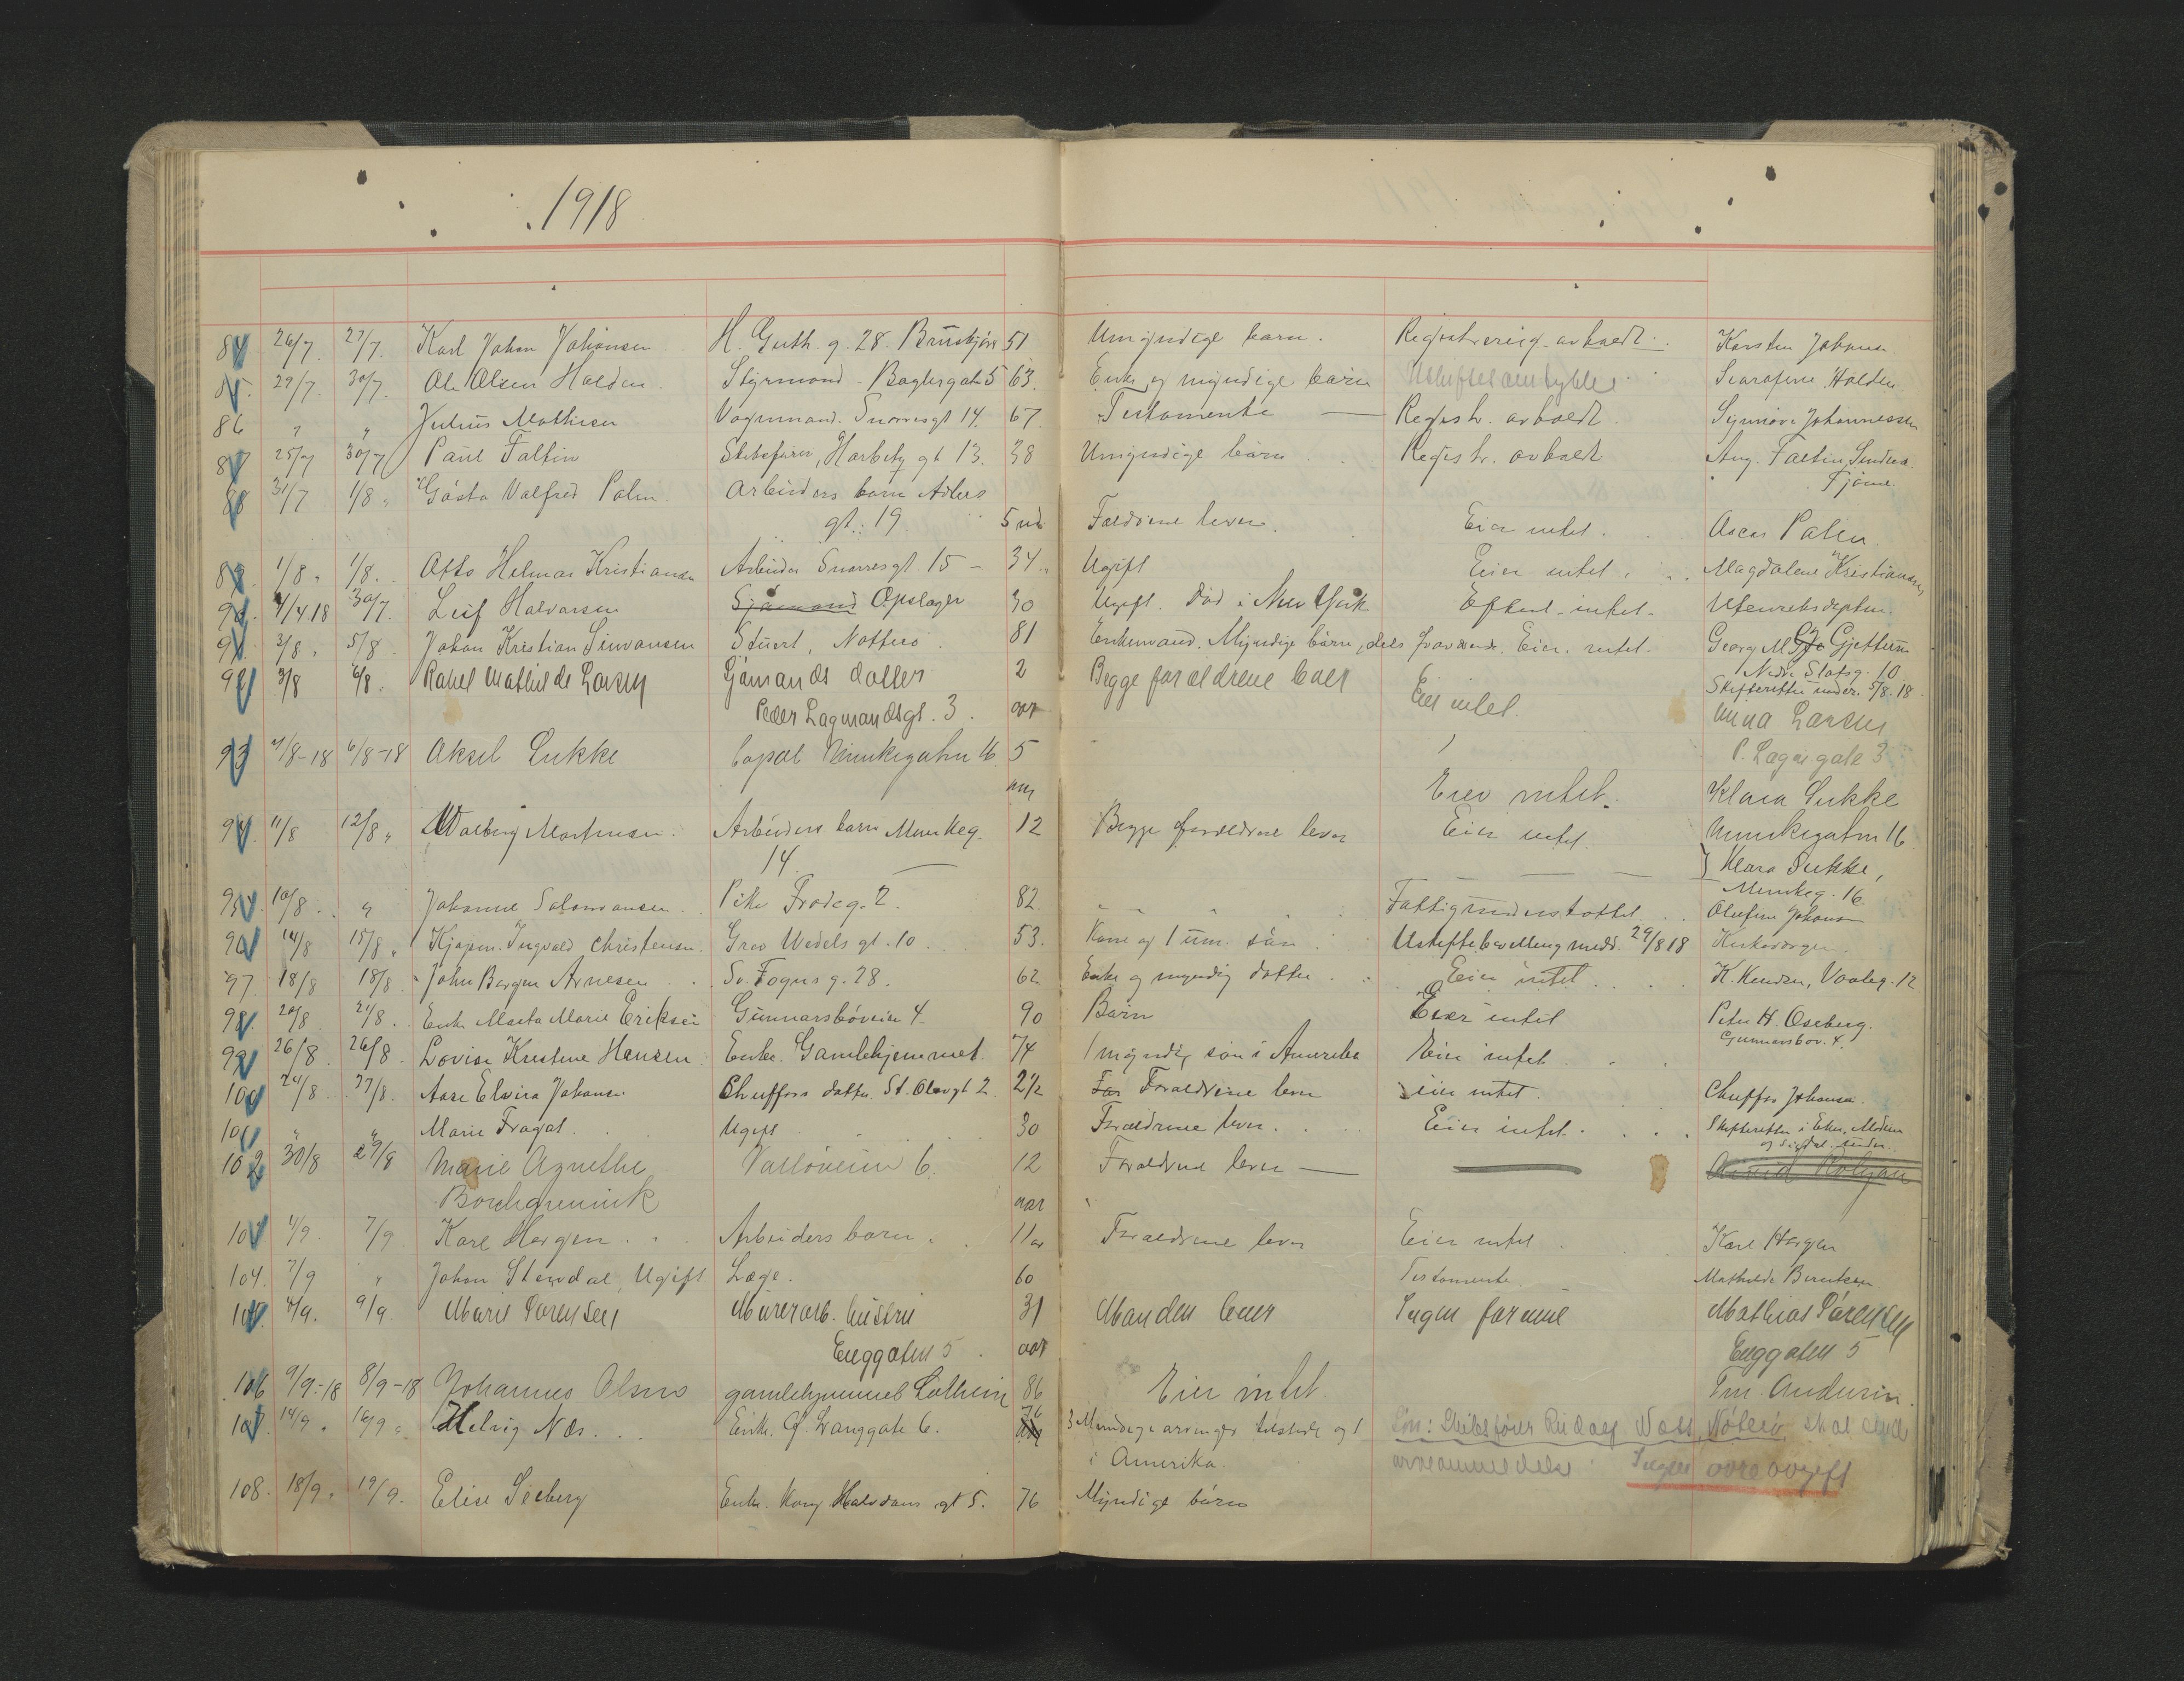 1918
84 26/7. 27/7. Karl Johan Johansen H. Guth. g. 28. 51 Umyndige barn. Registrering avholdt. Karsten Johansen
85. 29/7. 30/7. Ole Olsen Holden. Styrmand. Baglergate 5 63. Enke og myndige børn Holden
86 " " Julius Mathisen Vognmand. Snorresgt 14. 67. Testamente — Registr. avholdt. Synnøve Johannessen
87 25/7 30/7 Paul Faltin Skibsfører, gt 13. 38 Umyndige børn Registr. avholdt Aug. Faltin,
Tjøme.
88 31/7 1/8 " Gösta Valfred Palm Arbeiders barn Adlers
gt. 19. 5 md Forældrene lever. Eier intet. Oscar Palm
89. 1/8 " 1/8. Otto Helmar Kristiansen Arbeider Snorresgt. 15 – 34 " Ugift Eier intet. Magdalene Kristiansen
90. 4/4.18 30/7. Leif Halvorsen Sjømand Opslager 30 Ugift. Død i New York Efterl. intet. Utenriksdepten.
91. 3/8. 5/8. Johan Kristian Simonsen Stuert, Nøtterø. 81 Enkemand. Myndige børn, dels fraværende. Eier intet. Georg M. Gjettum
Nedre Slotsg. 10
92 3/8 6/8. Rakel Mathilde Larsen Sjømands datter 2 Begge forældrene lever Eier intet. Skifteretten under. 5/8.18
Peder Lagmandsgt. 3. aar Anna Larsen
P. Lagm gate 3
93 4/8-18 6/8-18 Aksel Lukke Munkegaten 16 5
aar Eier intet. Klara Lukke
94. 11/8 12/8 " Walborg Martinsen. Arbeiders barn Munkeg. 12 Begge forældrene lever Eier intet. Munkegaten 16
14 — Klara Lukke,
Munkeg. 16.
95. 10/8. " Johanne Salomonsen Pike Frodeg. 2. 82. " Fattigunderstøttet. Olufine Johansen
96 14/8 15/8 " Kjøpm. Ingvald Christensen. Grev Wedels gt. 10. 53. Kone og 1 um. søn. Uskiftebevilling medd. 29/8 18 Kirkeværgen.
97. 18/8 18/8 John Bergen Arnesen Sv. Foyns g. 28. 62 Enke og myndig datter. Eier intet K. Knudsen, Vooleg. 12
98. 20/8. 21/8. Enke Marta Marie Eriksen Gunnarsbøveien 4. 90 Børn Eier intet Peter H. Oseberg.
Gunnarsbøv. 4.
99 26/8. 26/8. Lovise Kristine Hansen Enke. Gamlehjemmet. 74 1 myndig søn i Amerika Eier intet.
100 24/8. 27/8. Aase Elvira Johansen Chufførs datter St. Olavgt 2. 2 1/2 For Forældrene lever Eier intet. Chuffør Johansen.
101 " " Marie Fragat. Ugift 30 Forældrene lever. Eier intet. Skifteretten i Eker, Modum
og Sigdal
102 30/8 29/8 Marie Agnethe Valløveien 6. 12 Forældrene lever —
Borchgrevink aar
103 4/9. 7/9 Kare Horgen. Arbeiders barn. 11 aar Forældrene lever Eier intet Karl Horgen
104. 7/9 " Johan Stendal, Ugift Læge. 60 Testamente. Mathilde Berntsen
105. 4/9. 9/9 Marie Sørensen Murerarb. hustru 31 Manden lever Ingen formue Mathias Sørensen
Enggaten 5. aar Enggaten 5
106 9/9-18 8/9-18 Johannes Olsen gamlehjemmet 86 Eier intet. Andersen.
107 14/9. 16/9 " Helvig Næs. Enke. Langgate 6. 76 3 Myndige arvinger tilstede og 1 Søn: Skibsfører Rudolf Næss, Nøtterø, skal
i Amerika. Ingen
108. 18/9. 19/9. Elise Seeberg Enke. Kong Halvdans gt 5. 76 Myndige børn